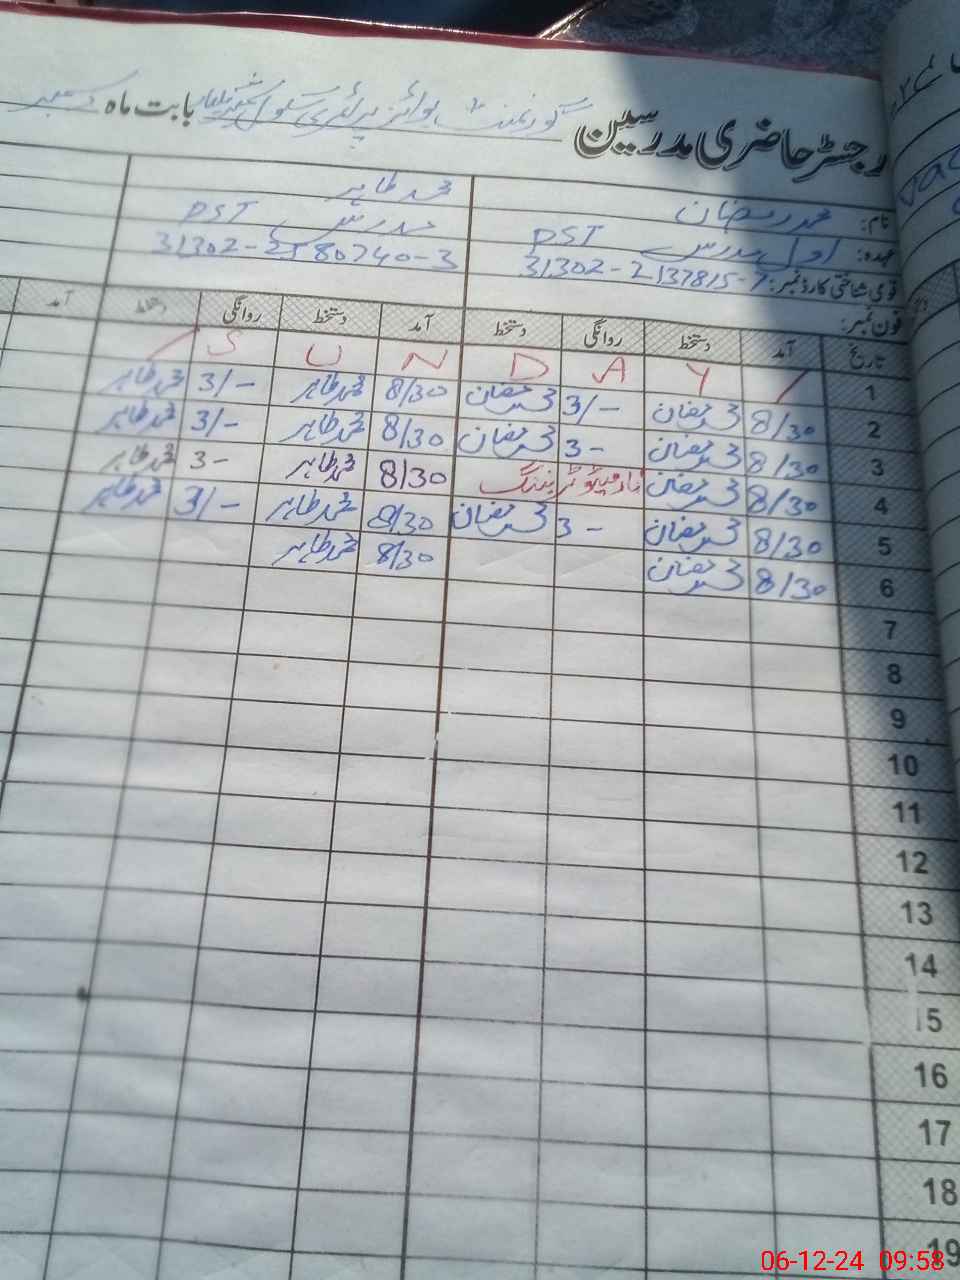 رجسٹر حاضری مدرسین گورنمنٹ بوائز پرائمری سکول بابت ماہ دسمبر
نام: محمد رمضان محمد طاہر
عہدہ: اول مدرس PST مدرس PST
قومی شناختی کارڈ نمبر: 31302-2137815-7 31302-2580740-3
فون نمبر:
تاریخ آمد دستخط روانگی دستخط آمد دستخط روانگی دستخط آمد
1 / Y A D N U S /
2 8/30 محمد رمضان 3/- محمد رمضان 8/30 محمد طاہر 3/- محمد طاہر
3 8/30 محمد رمضان 3- محمد رمضان 8/30 محمد طاہر 3/- محمد طاہر
4 8/30 محمد رمضان ٹریننگ 8/30 محمد طاہر 3- محمد طاہر
5 8/30 محمد رمضان 3- محمد رمضان 8/30 محمد طاہر 3/- محمد طاہر
6 8/30 محمد رمضان 8/30 محمد طاہر
7
8
9
10
11
12
13
14
15
16
17
18
19
06-12-24 09:58